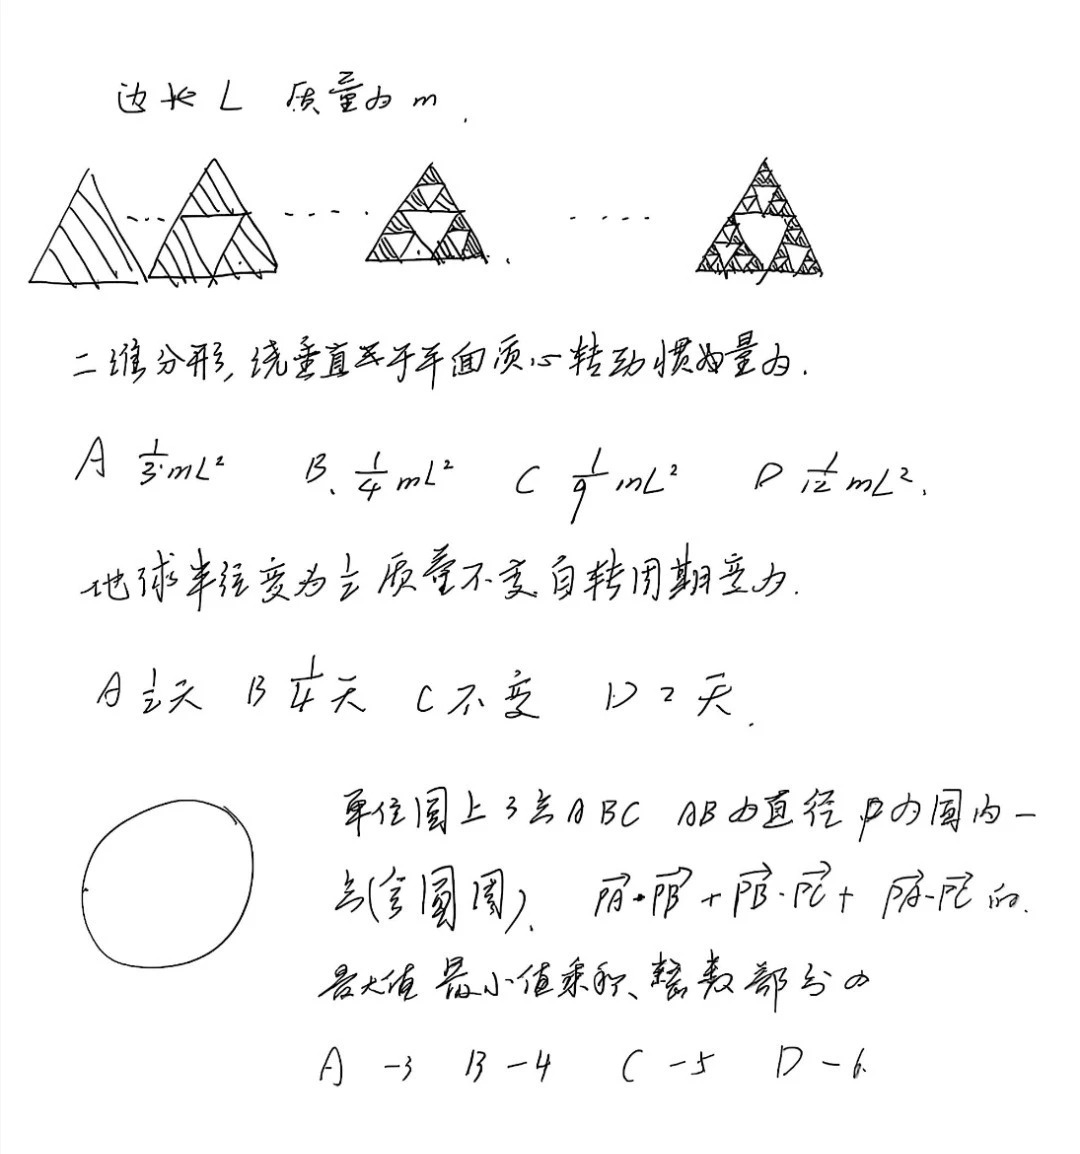 边长 L 质量为 m.
二维分形,绕垂直于平面质心转动惯量为.
A 1/3 mL² B. 1/4 mL² C 1/9 mL² D 1/12 mL².
地球半径变为 1/2 质量不变 自转周期变为.
A 1/2 天 B 1/4 天 C 不变 D 2 天.
单位圆上 3 点 A B C AB 为直径 P 为圆内一
点(含圆周). PA·PB + PB·PC + PA·PC 的.
最大值 最小值乘积、整数部分为
A -3 B -4 C -5 D -6.